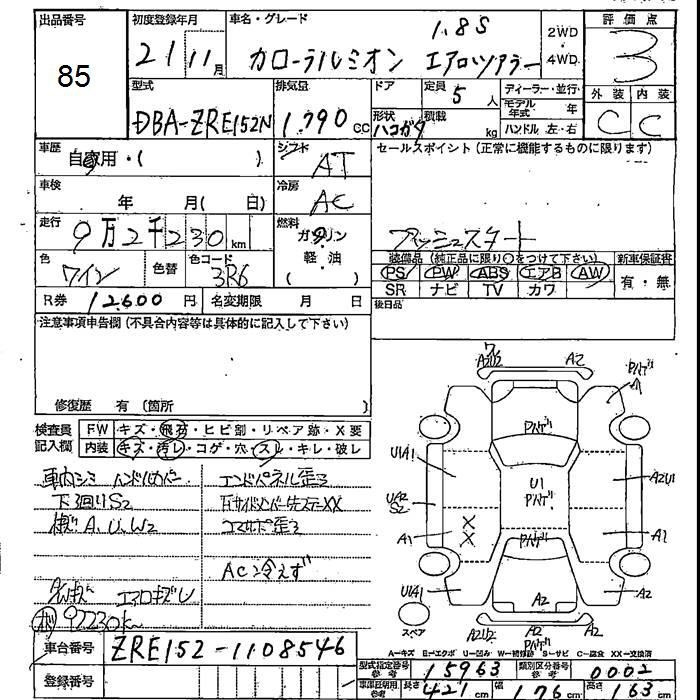 出品番号 85
初度登録年月 21/11月
車名・グレード 1.8S
カローラルミオン エアロツアラー
2WD・4WD
評価点 3
外装 内装
C C
型式 DBA-ZRE152N
排気量 1,790 CC
ドア 形状 ハコガタ
定員 5人 積載 kg
ディーラー・並行
モデル年式 年
ハンドル 左・右
車歴 自家用・( )
シフト AT
セールスポイント (正常に機能するものに限ります)
車検 年 月( 日)
冷房 AC
走行 9万2千230 km
燃料 ガソリン・軽油
プッシュスタート
色 ワイン 色替 色コード 3R6
装備品 (純正品に限り○をつけて下さい) 新車保証書
PS PW ABS エアB AW 有・無
SR ナビ TV カワ
R券 12,600 円 名変期限 月 日
後日品
注意事項申告欄 (不具合内容等は具体的に記入して下さい)
修復歴 有 (箇所 )
検査員記入欄 FW キズ・飛石・ヒビ割・リペア跡・X要
内装 キズ・汚レ・コゲ・穴・スレ・キレ・破レ
車内シミ ハンドルカバー
エンドパネル歪ミ
下廻りS2
コアサポ歪ミ
AC冷えず
エアロキズレ
92230k
車台番号 ZRE152-1108546
登録番号
A2U2 A2
U1A1 U1 A2U1
UAR S2
A1 X X A1
U1A1 A2
A2
スペア A2U2 A2
A-キズ E-エクボ U-凹み W-補修跡 S-サビ C-腐食 XX-交換済
型式指定番号 参考 15963 類別区分番号 参考 0002
車庫証明用 参考 長さ 421 cm 幅 176 cm 高さ 163 cm